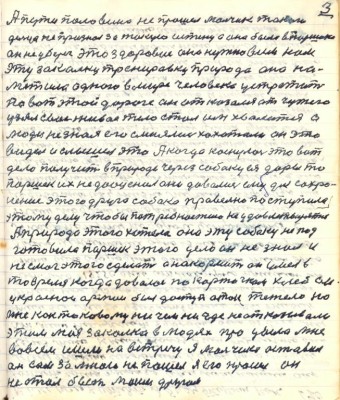 3
А пути половины не прошел мальчик такого
дела не признал за такую истину а она была в Паршека
он не думал это здоровие оно нужно всем нам
Эту закалку тренировку природа она на-
одного в мире человека устроить
По вот этой дороге он отказался от чужого
стал им хвалится а
люди не зная его смеялись хохотали он это
видел и слышал это А когда коснулось это вот
дело получить в природе через собаку дары то
Паршек их не дооценил они давались ему для сохра-
нение этого друга собака правильно поступила
этому делу чтобы потребностью не удовлетворятся
А природа этого хотела она эту собаку не под
готовила Паршек этого дела он не знал и
не смог этого сделать а накормить он имел в
то время когда давался по карточкам хлеб он
у красной армии был доступ отом тяжело но
мне как таковому ни чем ни где не отказывали
этим моя закалка в людях про мне
во всем шли на встречу Я мальчика оставил
он сам за мною не пошел я его прошу он
не стал быть моим другом